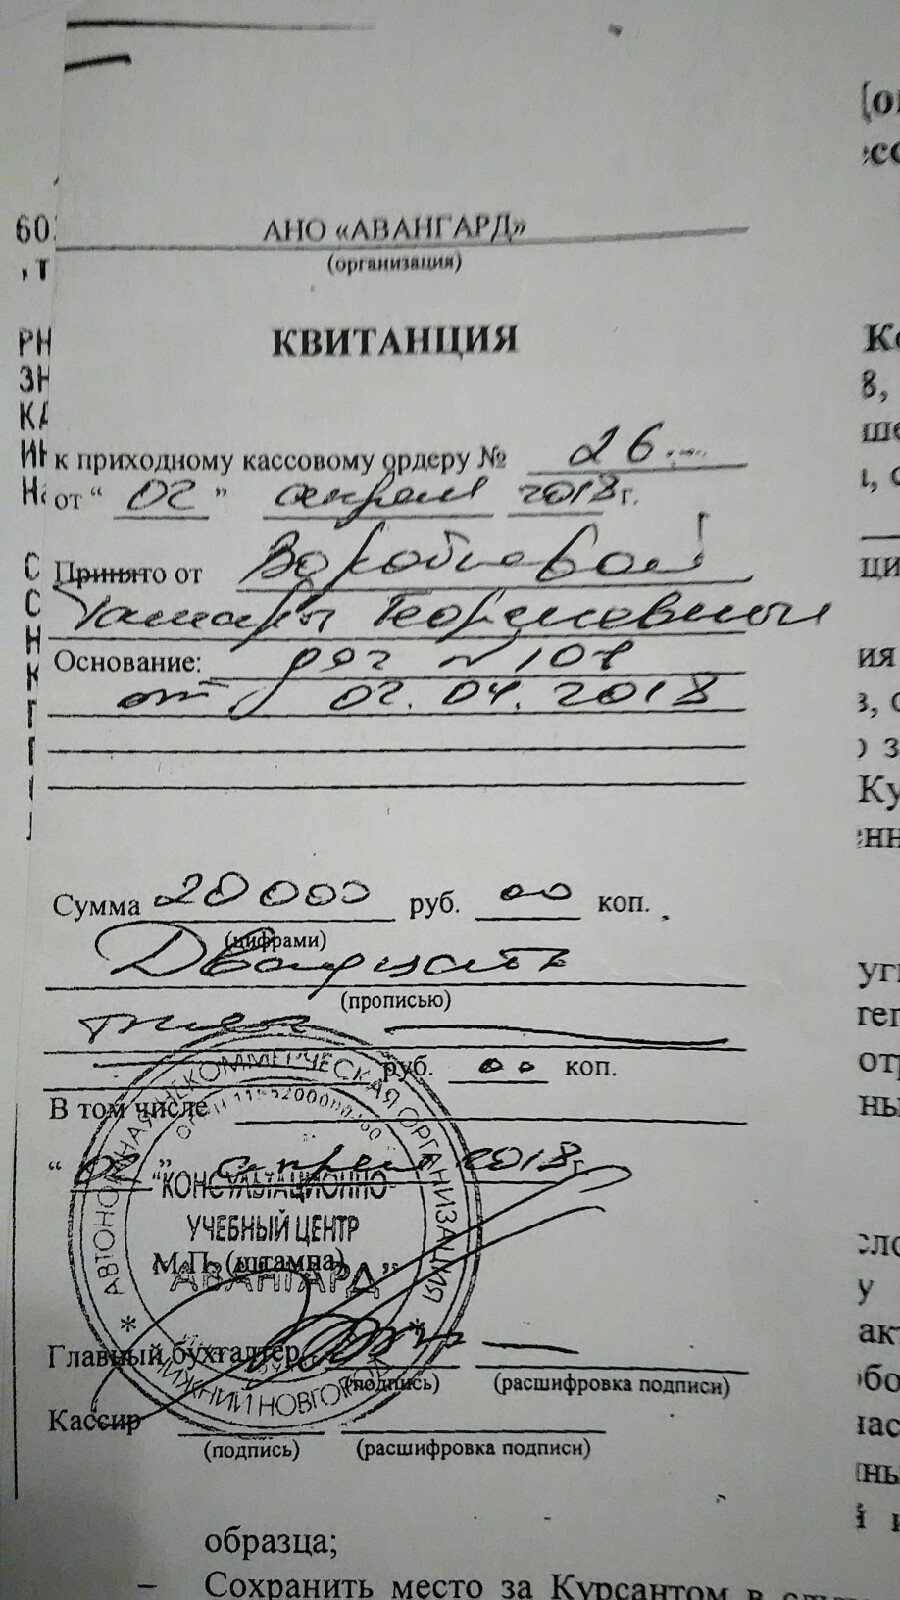 АНО «АВАНГАРД»
(организация)
КВИТАНЦИЯ
к приходному кассовому ордеру № 26
от “ 02 ” апреля 2018 г.
Принято от Воробьевой
Тамары Георгиевны
Основание: дог № 107
от 02.04.2018
Сумма 20 000 руб. 00 коп.
(цифрами)
Двадцать
(прописью)
тысяч
руб. 00 коп.
В том числе
“ 02 ” апреля 2018 г.
М.П. (штампа)
АВТОНОМНАЯ НЕКОММЕРЧЕСКАЯ ОРГАНИЗАЦИЯ
ОГРН
“КОНСУЛЬТАЦИОННО-
УЧЕБНЫЙ ЦЕНТР
“АВАНГАРД”
* НИЖНИЙ НОВГОРОД *
Главный бухгалтер
(подпись) (расшифровка подписи)
Кассир
(подпись) (расшифровка подписи)
образца;
– Сохранить место за Курсантом в